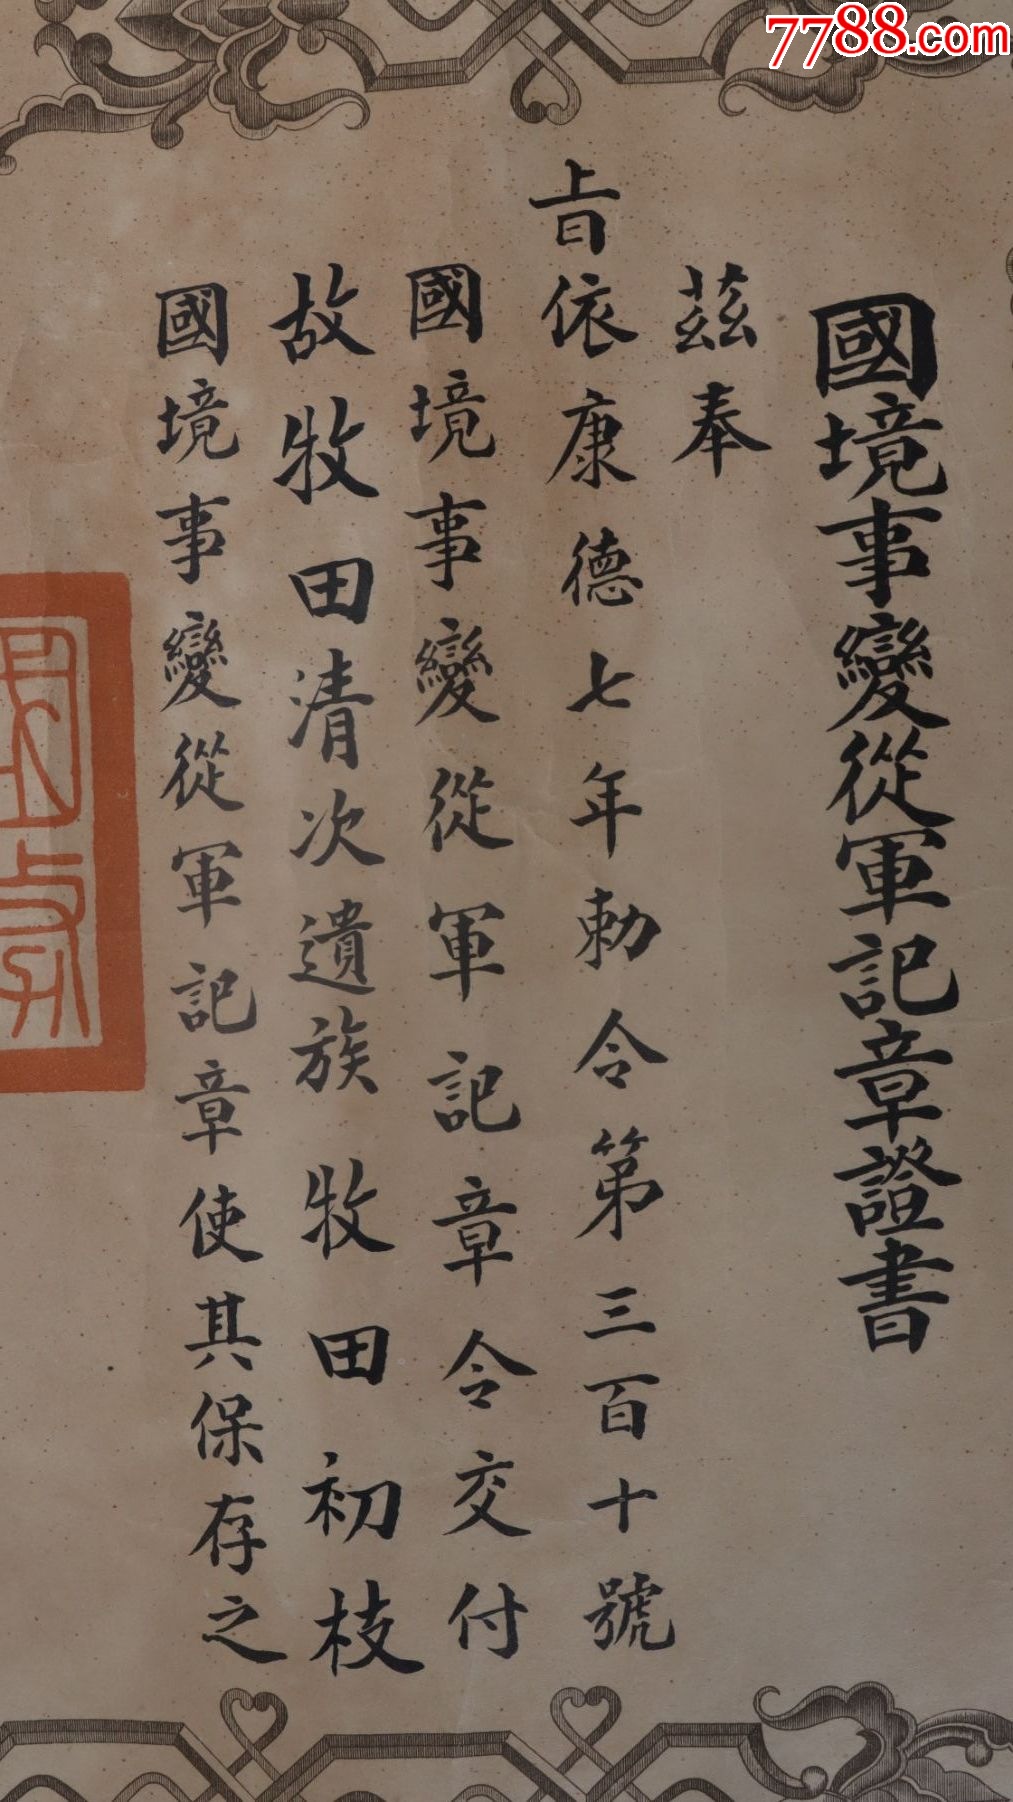 7788.com
國境事變從軍記章證書
茲奉
旨依康德七年勅令第三百十號
國境事變從軍記章令交付
故牧田清次遺族牧田初枝
國境事變從軍記章使其保存之